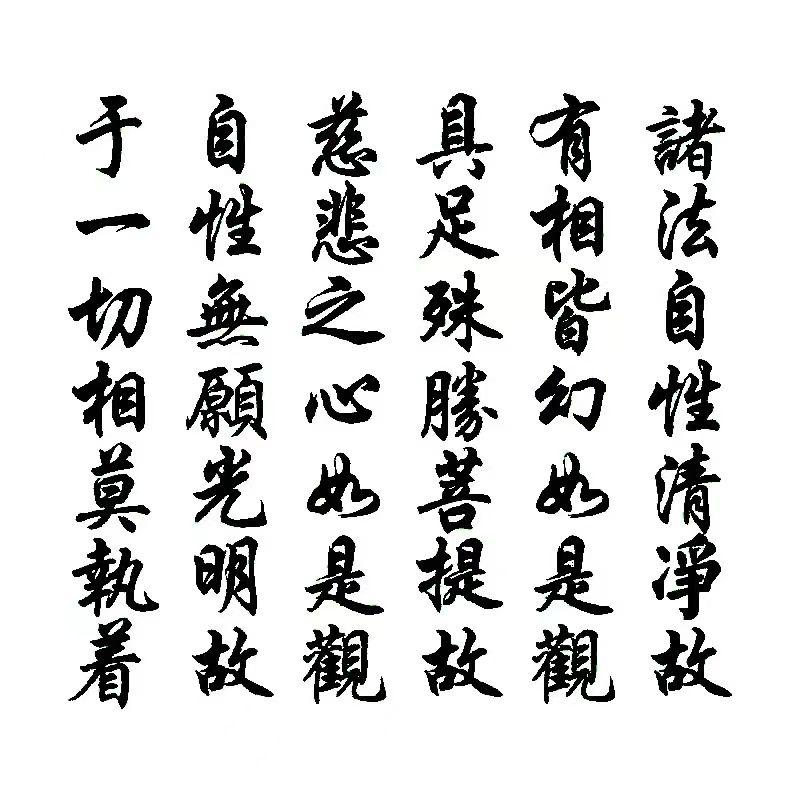 諸法自性清淨故
有相皆幻如是觀
具足殊勝菩提故
慈悲之心如是觀
自性無願光明故
于一切相莫執着